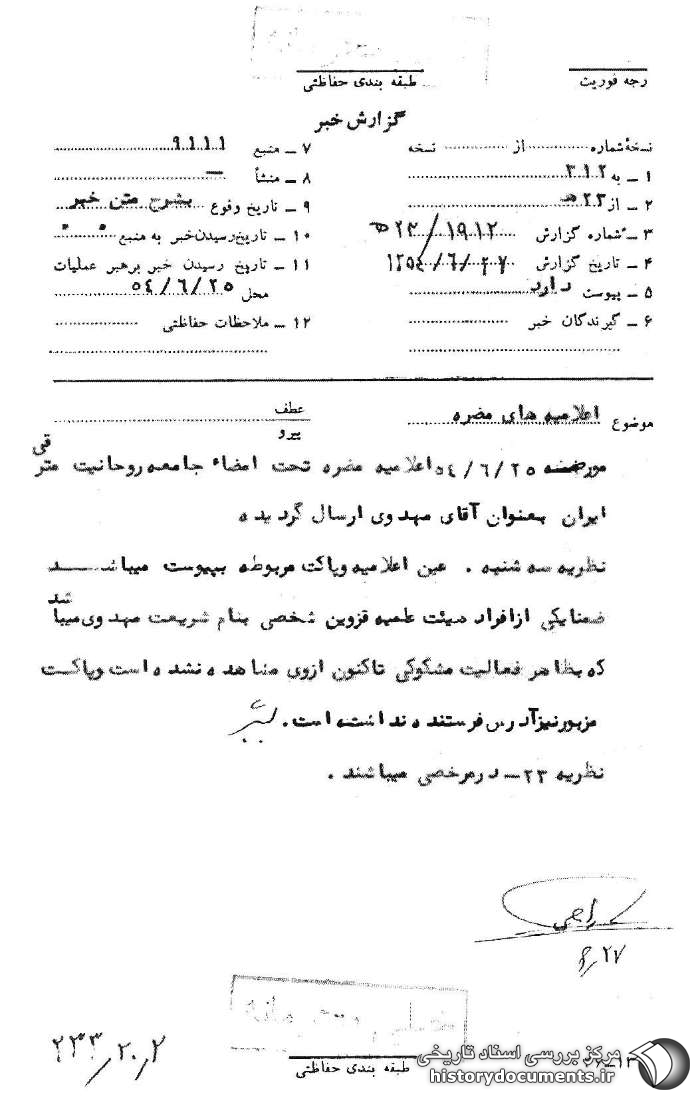 رجه فوریت
طبقه بندی حفاظتی
گزارش خبر
نسخهٔ شماره ............ از ............ نسخه
۱ ــ به ۳۱۲
۲ ــ از ۲۳ هـ
۳ ــ شماره گزارش ۱۹۱۲ / ۲۳ ه
۴ ــ تاریخ گزارش ۱۳۵۴/۶/۲۷
۵ ــ پیوست دارد
۶ ــ گیرندگان خبر
۷ ــ منبع ۹۱۱۱
۸ ــ منشأ ــ
۹ ــ تاریخ وقوع بشرح متن خبر
۱۰ ــ تاریخ رسیدن خبر به منبع ۰ ۰
۱۱ ــ تاریخ رسیدن خبر برهبر عملیات
محل ۵۴/۶/۲۵
۱۲ ــ ملاحظات حفاظتی
موضوع اعلامیه های مضره
عطف
پیرو
مورخه ۵۴/۶/۲۵ اعلامیه مضره تحت امضاء جامعه روحانیت مترقی
ایران بعنوان آقای مهدوی ارسال گردیده
نظریه سه شنبه . عین اعلامیه وپاکت مربوطه بپیوست میباشــــد
ضمنایکی ازافراد هیئت علمیه قزوین شخصی بنام شریعت مهدوی میباشد
که بظاهر فعالیت مشکوکی تاکنون ازوی مشاهده نشده است وپاکـت
مزبورنیزآدرس فرستنده نداشته است .
نظریه ۲۳ ــ درمرخصی میباشند .
۶/۲۷
۲۳۳/۲۰/۲
طبقه بندی حفاظتی
مرکز بررسی اسناد تاریخی
historydocuments.ir